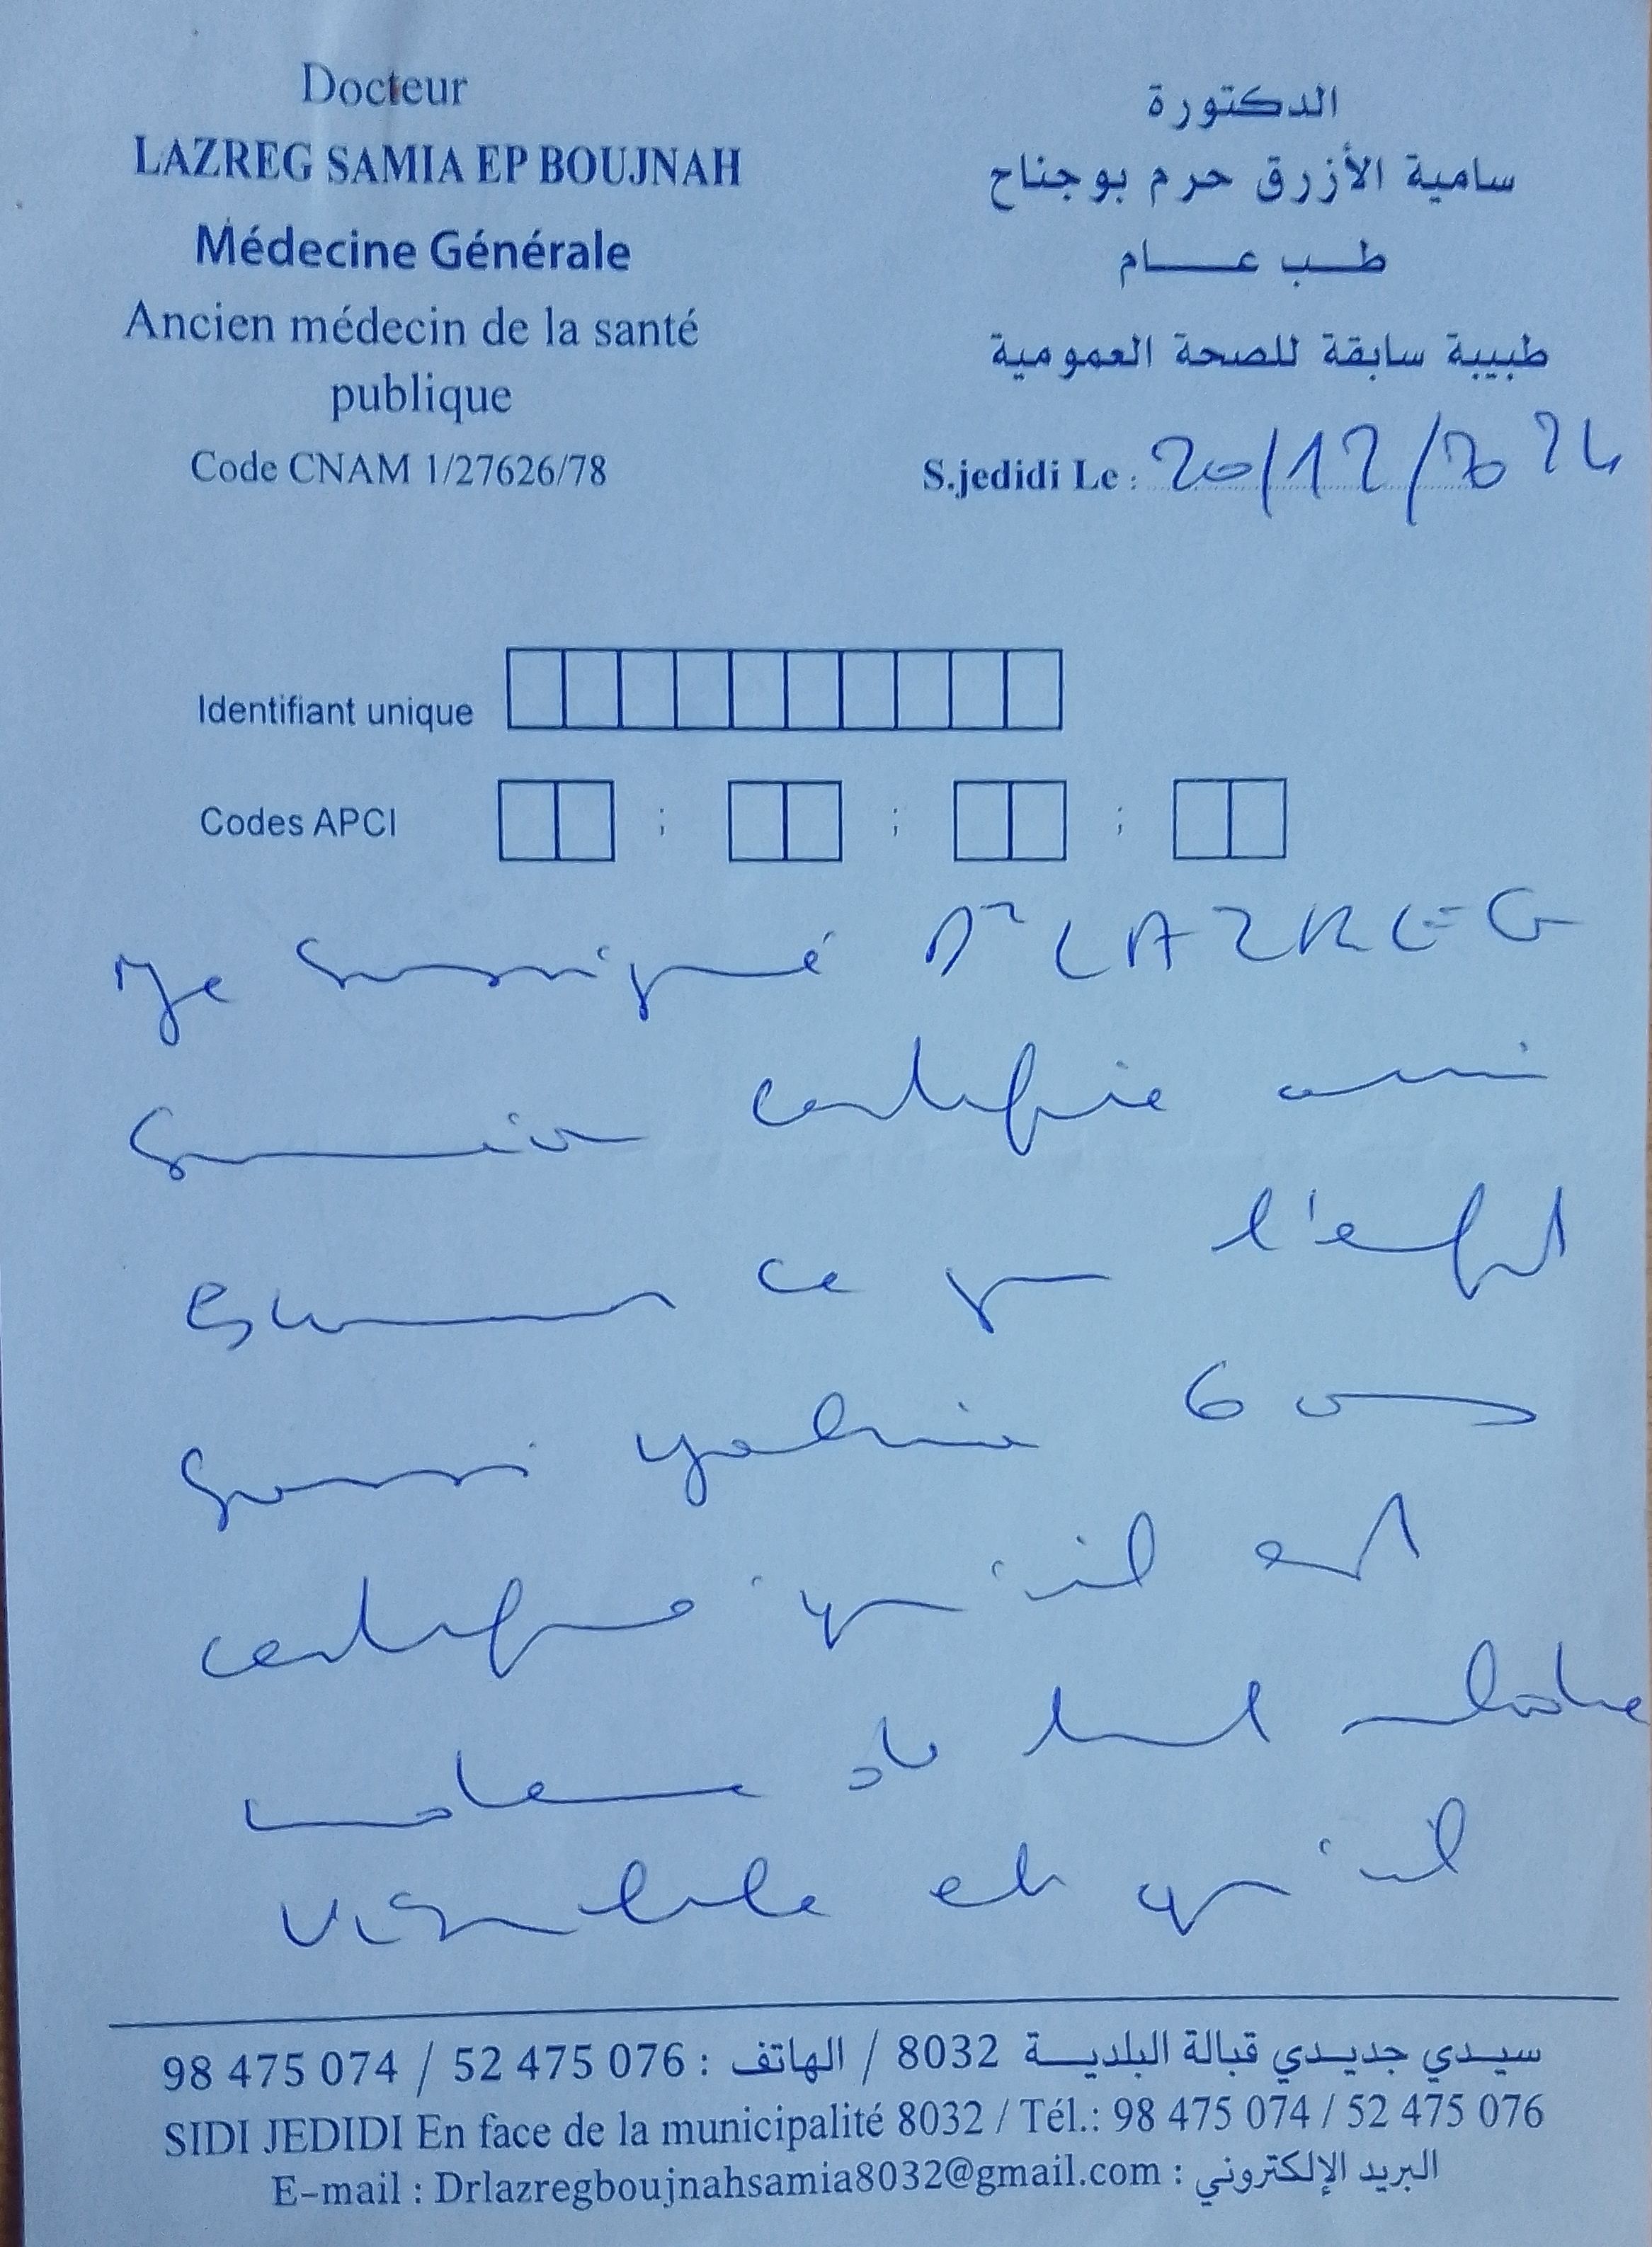 Docteur
LAZREG SAMIA EP BOUJNAH
Médecine Générale
Ancien médecin de la santé
publique
Code CNAM 1/27626/78
الدكتورة
سامية الأزرق حرم بوجناح
طب عام
طبيبة سابقة للصحة العمومية
S.jedidi Le : 20/12/2024
Identifiant unique
Codes APCI
; ; ;
Je soussigné Dr LAZREG
Samia certifie avoir
examiné ce jour l'enfant
6 ans
certifie qu'il est
et qu'il
سيدي جديدي قبالة البلدية 8032 / الهاتف : 98 475 074 / 52 475 076
SIDI JEDIDI En face de la municipalité 8032 / Tél.: 98 475 074 / 52 475 076
E-mail : Drlazregboujnahsamia8032@gmail.com : البريد الإلكتروني